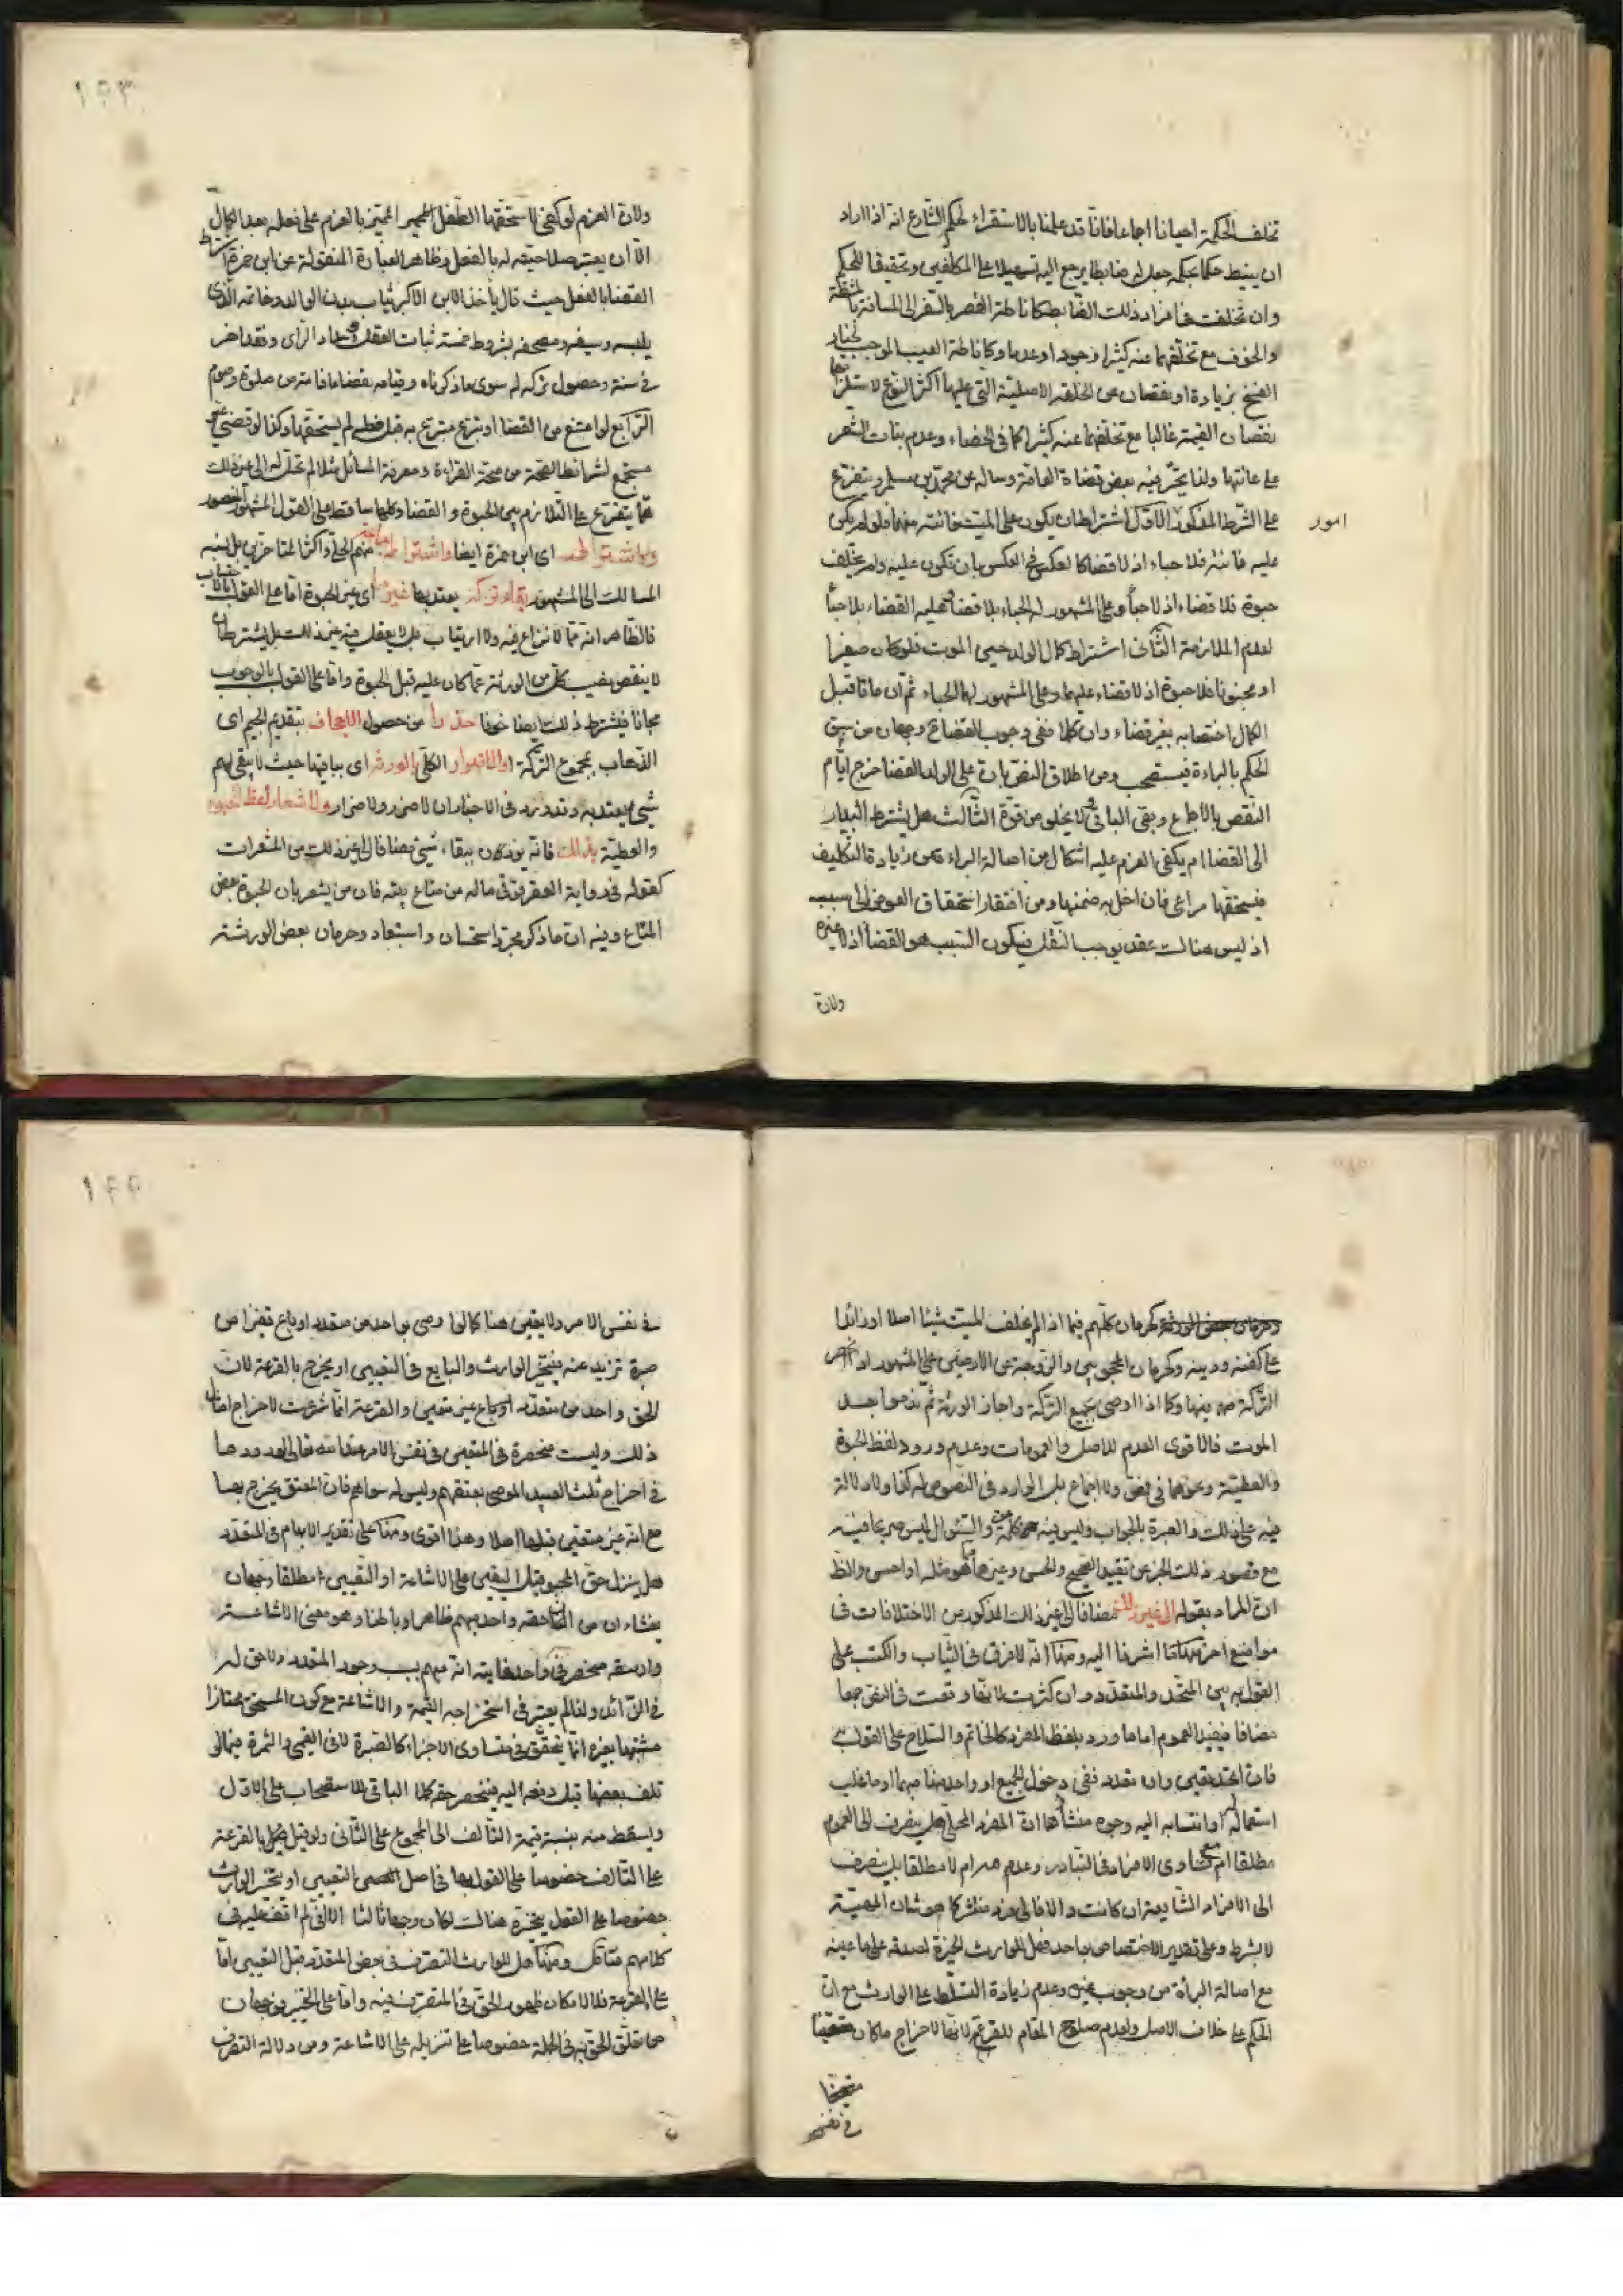 تخلف الحكمة احيانا اجماعا فانا قد علمنا بالاستقراء لحكم الشارع انه اذا اراد
ان ينيط حكما بحكمة جعل له ضابطا يرجع اليه تسهيلا على المكلفين وتحقيقا للحكم
وان تخلفت في افراد ذلك الضابط كاناطة القصر بالسفر الى المسافة بالمشقة
والخوف مع تخلفهما عنه كثيرا وجودا وعدما وكاناطة العيب الموجب لخيار
الفسخ بزيادة او نقصان عن الخلقة الاصلية التي عليها اكثر النوع لاستلزامها
نقصان القيمة غالبا مع تخلفها عنه كثيرا كما في الخصاء وعدم نبات الشعر
على عانتها ولذا تحير فيه بعض قضاة العامة وساله عن محمد بن مسلم ويتفرع
على الشرط المذكور الاول اشتراط ان يكون على الميت فائتة منهما فلو لم يكن
امور
عليه فائتة فلا حباء اذ لا قضاء كالعكس في العكس بان تكون عليه ولم يخلف
حبوة فلا قضاء اذ لا حباء وعلى المشهور له الحباء بلا قضاء وعليه القضاء بلا حباء
لعدم الملازمة الثاني اشتراط كمال الولد حين الموت فلو كان صغيرا
او مجنونا فلا حبوة اذ لا قضاء عليهما وعلى المشهور لهما الحباء ثم ان ماتا قبل
الكمال اختصا به بغير قضاء وان كملا ففي وجوب القضاء وجهان من سبق
الحكم بالبراءة فيستصحب ومن اطلاق النص بان على الولد القضا خرج ايام
النقص بالاجماع وبقي الباقي ولا يخلو من قوة الثالث هل يشترط البدار
الى القضا ام يكفي العزم عليه اشكال من اصالة البراءة من زيادة التكليف
فيستحقها مراعى فان اخل به ضمنها ومن افتقار استحقاق العوض الى سبب
اذ ليس هنالك عقد يوجب النقل فيكون السبب هو القضا اذ لا غيره
ولان
١٤٣
ولان العزم لو كفى لاستحقها الطفل المميز بالعزم على فعله بعد الكمال
الا ان يعتبر صلاحيته له بالفعل وظاهر العبارة المنقولة عن ابن حمزة اشتراط
القضا بالفعل حيث قال يأخذ الابن الاكبر ثياب بدن الوالد وخاتمه الذي
يلبسه وسيفه ومصحفه بشروط خمسة ثبات العقل وسداد الراى وفقد اخر
في سنه وحصول تركة له سوى ما ذكرناه وقيامه بقضاء ما فاته من صلوة وصوم
الرابع لو امتنع من القضا او تبرع متبرع به قبل فعله لم يستحقها وكذا لو قضى غير
مستجمع لشرائط الصحة من صحة القراءة ومعرفة المسائل مثلا لم تحل له الى غير ذلك
مما يتفرع على التلازم بين الحبوة والقضا وكلها ساقط على القول المشهور المنصور
واشتراطهم اى ابن حمزة ايضا واشتراط جماعة منهم الحلي واكثر المتاخرين بل نسبه
المسالك الى المشهور بقاء تركة يعتد بها غير اى غير الحبوة اما على القول بالاحتساب
فالظاهر انه مما لا نزاع فيه ولا ارتياب بل لا يعقل فيه غير ذلك بل يشترط ان
لا ينقص نصيب كل من الورثة عما كان عليه قبل الحبوة واما على القول بالوجوب
مجانا فيشترط ذلك ايضا خوفا حذرا من حصول الاجحاف بتقديم الجيم اى
الذهاب بمجموع التركة او الاضرار الكلي بالورثة اى بباقيها حيث لا يبقى لهم
شيئ يعتد به وقد ورد في الاخبار ان لا ضرر ولا ضرار ولاشعار لفظ الحبوة
والعطية بذلك فانه يؤذن ببقاء شيئ مضافا الى غير ذلك من المشعرات
كقوله في رواية العقرقوفي ماله من متاع بيته فان من يشعر بان الحبوة بعض
المتاع وفيه ان ما ذكر مجرد استحسان واستبعاد وحرمان بعض الورثة
وحرمان بعض الورثة كحرمان كلهم فيما اذا لم يخلف الميت شيئا اصلا او زائدا
على كفنه ودينه وكحرمان المحجوبين والزوجة عن الارضين على المشهور او انحصر
التركة فيها وكما اذا اوصى بجميع التركة واجاز الورثة ثم ندموا بعد
الموت فالاقوى العدم للاصل والعمومات وعدم ورود لفظ الحبوة
والعطية ونحوهما في نص ولا اجماع بل الوارد في النصوص له كذا ولا دلالة
فيه على ذلك والعبرة بالجواب وليس فيه كلمة من والسئوال ليس صريحا فيه
مع قصور ذلك الخبر عن تقييد الصحيح والحسن وغيرهما مما هو مثله او احسن والظ
ان المراد بقوله الى غير ذلك مضافا الى غير ذلك المذكور من الاختلافات في
مواضع اخر منها ما اشرنا اليه ومنها انه لا فرق في الثياب والكتب على
القول به بين المتحد والمتعدد وان كثرت لانها وقعت في النص جمعا
مضافا فيفيد العموم اما ما ورد بلفظ المفرد كالخاتم والسلاح على القول به
فان اتحد تعين وان تعدد ففي دخول الجميع او واحد منها مبهما او ما غلب
استعماله او انتسابه اليه وجوه منشأها ان المفرد المحلى هل ينصرف الى العموم
مطلقا ام مع تساوى الافراد في التبادر وعدم عهد ام لا مطلقا بل ينصرف
الى الافراد الشايعة ان كانت والا فالى فرد منتشر كما هو شان المهية
لا بشرط وعلى تقدير الاختصاص بواحد فهل للوارث الخيرة لصدقه على ما عينه
مع اصالة البرأة من وجوب غيره وعدم زيادة التسلط على الوارث مع ان
الحكم على خلاف الاصل ولعدم صلوح المقام للقرعة لانها لاخراج ما كان متعينا
متعينا
في نفس
١٤٤
في نفس الامر ولا يتعين هنا كما لو اوصى بواحد من متعدد او باع قفيزا من
صبرة تزيد عنه فيتخير الوارث والبايع في التعيين او يخرج بالقرعة لان
الحق واحد من متعدد او باع غير متعين والقرعة انما شرعت لاخراج امثال
ذلك وليست منحصرة في المتعين في نفس الامر عند الله تعالى لورودها
في اخراج ثلث العبيد الموصى بعتقهم وليس له سواهم فان المعتق يخرج بها
مع انه غير متعين قبلها اصلا وهذا اقوى ومنها على تقدير الابهام في المتعدد
هل ينزل حق المحبو قبل التعيين على الاشاعة او التعيين مطلقا وجهان
ينشاءان من ان حقه واحد مبهم ظاهرا وباطنا وهو معنى الاشاعة
وان حقه منحصر في واحد غايته انه مبهم بسبب وجود المتعدد ولا حق له
في الزائد ولذا لم يعتبر في استخراجه القيمة والاشاعة مع كون المستحق ممتازا
مشتبها بغيره انما يتحقق في متساوى الاجزاء كالصبرة لا في القيمي والثمرة فيما لو
تلف بعضها قبل دفعه اليه فينحصر حقه كملا الباقي للاستصحاب على الاول
واسقط منه بنسبة قيمة التالف الى المجموع على الثاني ولو قيل بالقرعة
على التالف خصوصا على القول بها في اصل التعيين او بتخير الوارث
خصوصا على القول بتخيره هنالك لكان وجها ثالثا الا اني لم اقف عليه في
كلامهم فتامل ومنها هل للوارث التصرف في بعض المتعدد قبل التعيين اما
على القرعة فلا لامكان ظهور الحق في المتصرف فيه واما على التخير فوجهان
من تعلق الحق به في الجملة خصوصا على تنزيله على الاشاعة ومن دلالة التصرف